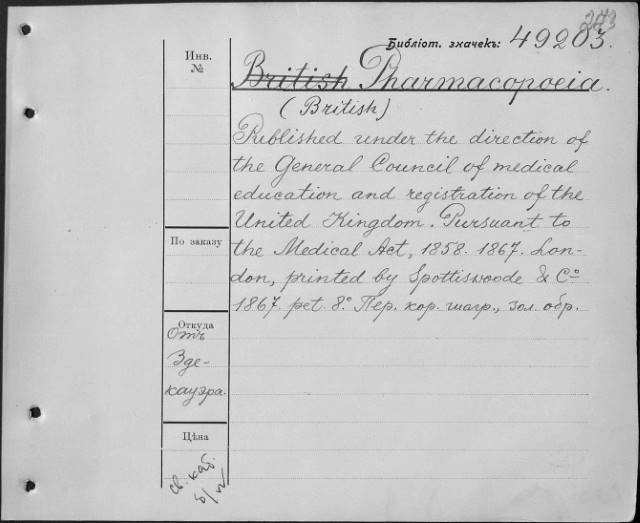 243
Библіот. значекъ: 49203.
Инв.
№
British Pharmacopoeia.
(British)
Published under the direction of
the General Council of medical
education and registration of the
United Kingdom. Pursuant to
По заказу
the Medical Act, 1858. 1867. Lon-
don, printed by Spottiswoode & Cº
1867. pet. 8.º Пер. кор. шагр., зол. обр.
Откуда
Отъ
Зде-
кауэра.
Цѣна
св. каб.
б/